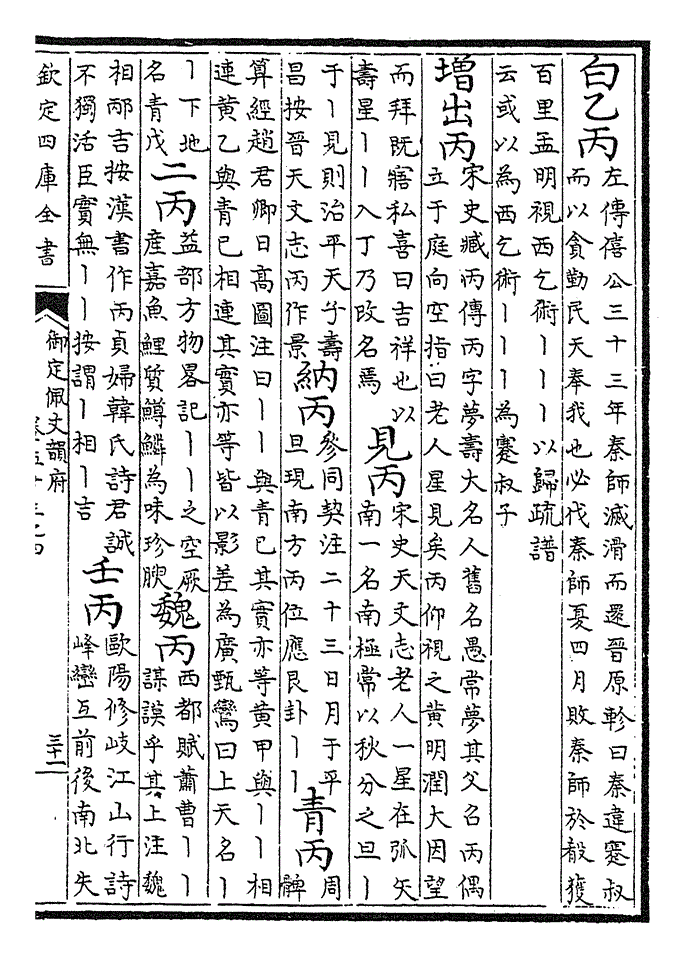 白乙丙
左傳僖公三十三年秦師滅滑而還晉原軫曰秦違蹇叔
而以貪勤民天奉我也必伐秦師夏四月敗秦師於殽獲
百里孟明視西乞術丨丨丨以歸疏譜
云或以為西乞術丨丨丨為蹇叔子
增出丙
宋史臧丙傳丙字夢壽大名人舊名愚常夢其父召丙偶
立于庭向空指曰老人星見矣丙仰視之黄明潤大因望
而拜既寤私喜曰吉祥也以
壽星丨丨入丁乃改名焉
見丙
宋史天文志老人一星在弧矢
南一名南極常以秋分之旦丨
于丨見則治平天子壽
昌按晉天文志丙作景
納丙
參同契注二十三日月于平
旦現南方丙位應艮卦丨丨
青丙
周
髀
算經趙君卿曰髙圖注曰丨丨與青已其實亦等黄甲與丨丨相
連黄乙與青已相連其實亦等皆以影差為廣甄鸞曰上天名丨
丨下地
名青戊
二丙
益部方物畧記丨丨之空厥
産嘉魚鯉質鱒鱗為味珍腴
魏丙
西都賦蕭曹丨丨
謀謨乎其上注魏
相邴吉按漢書作丙貞婦韓氏詩君誠
不獨活臣實無丨丨按謂丨相丨吉
壬丙
歐陽修岐江山行詩
峰巒互前後南北失
欽定四庫全書
御定佩文韻府
三十二